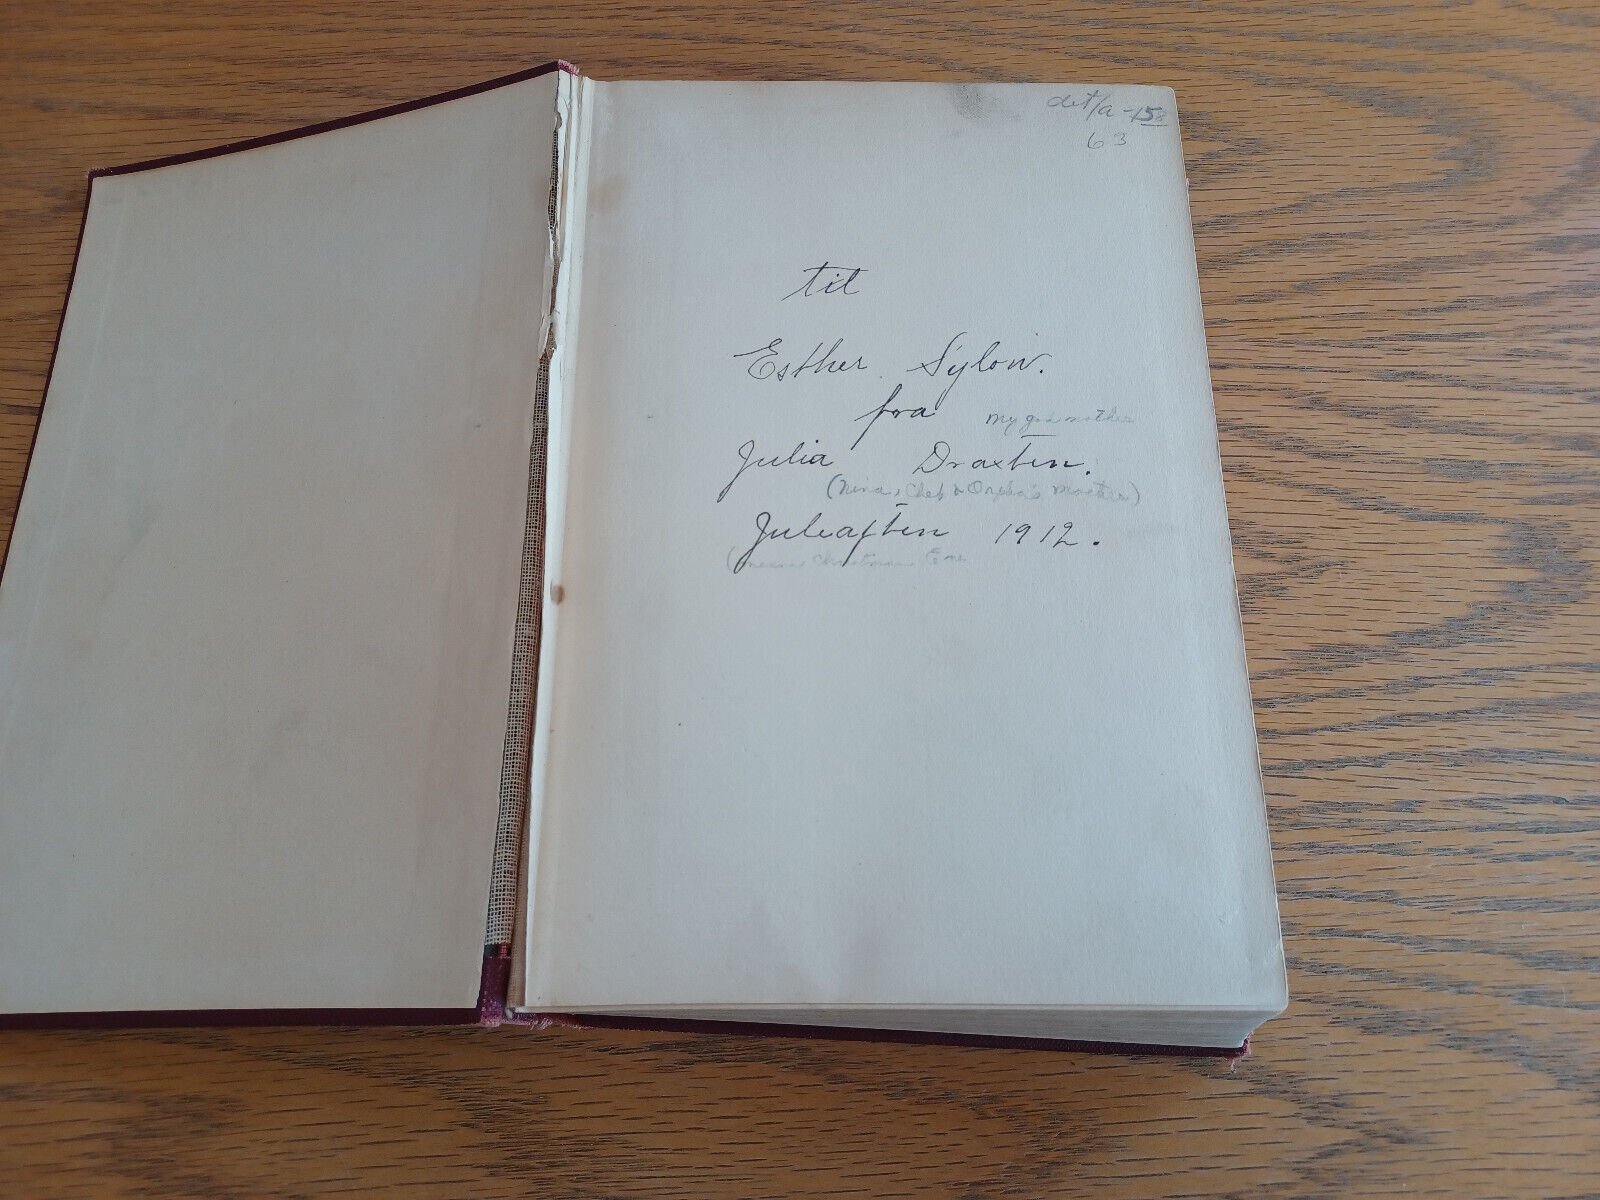 det/a -15
63
til
Esther Sylow.
fra my god mother
Julia Draxten.
(Nina, Chet & Orpha's Mother)
Juleaften 1912.
(means Christmas Eve